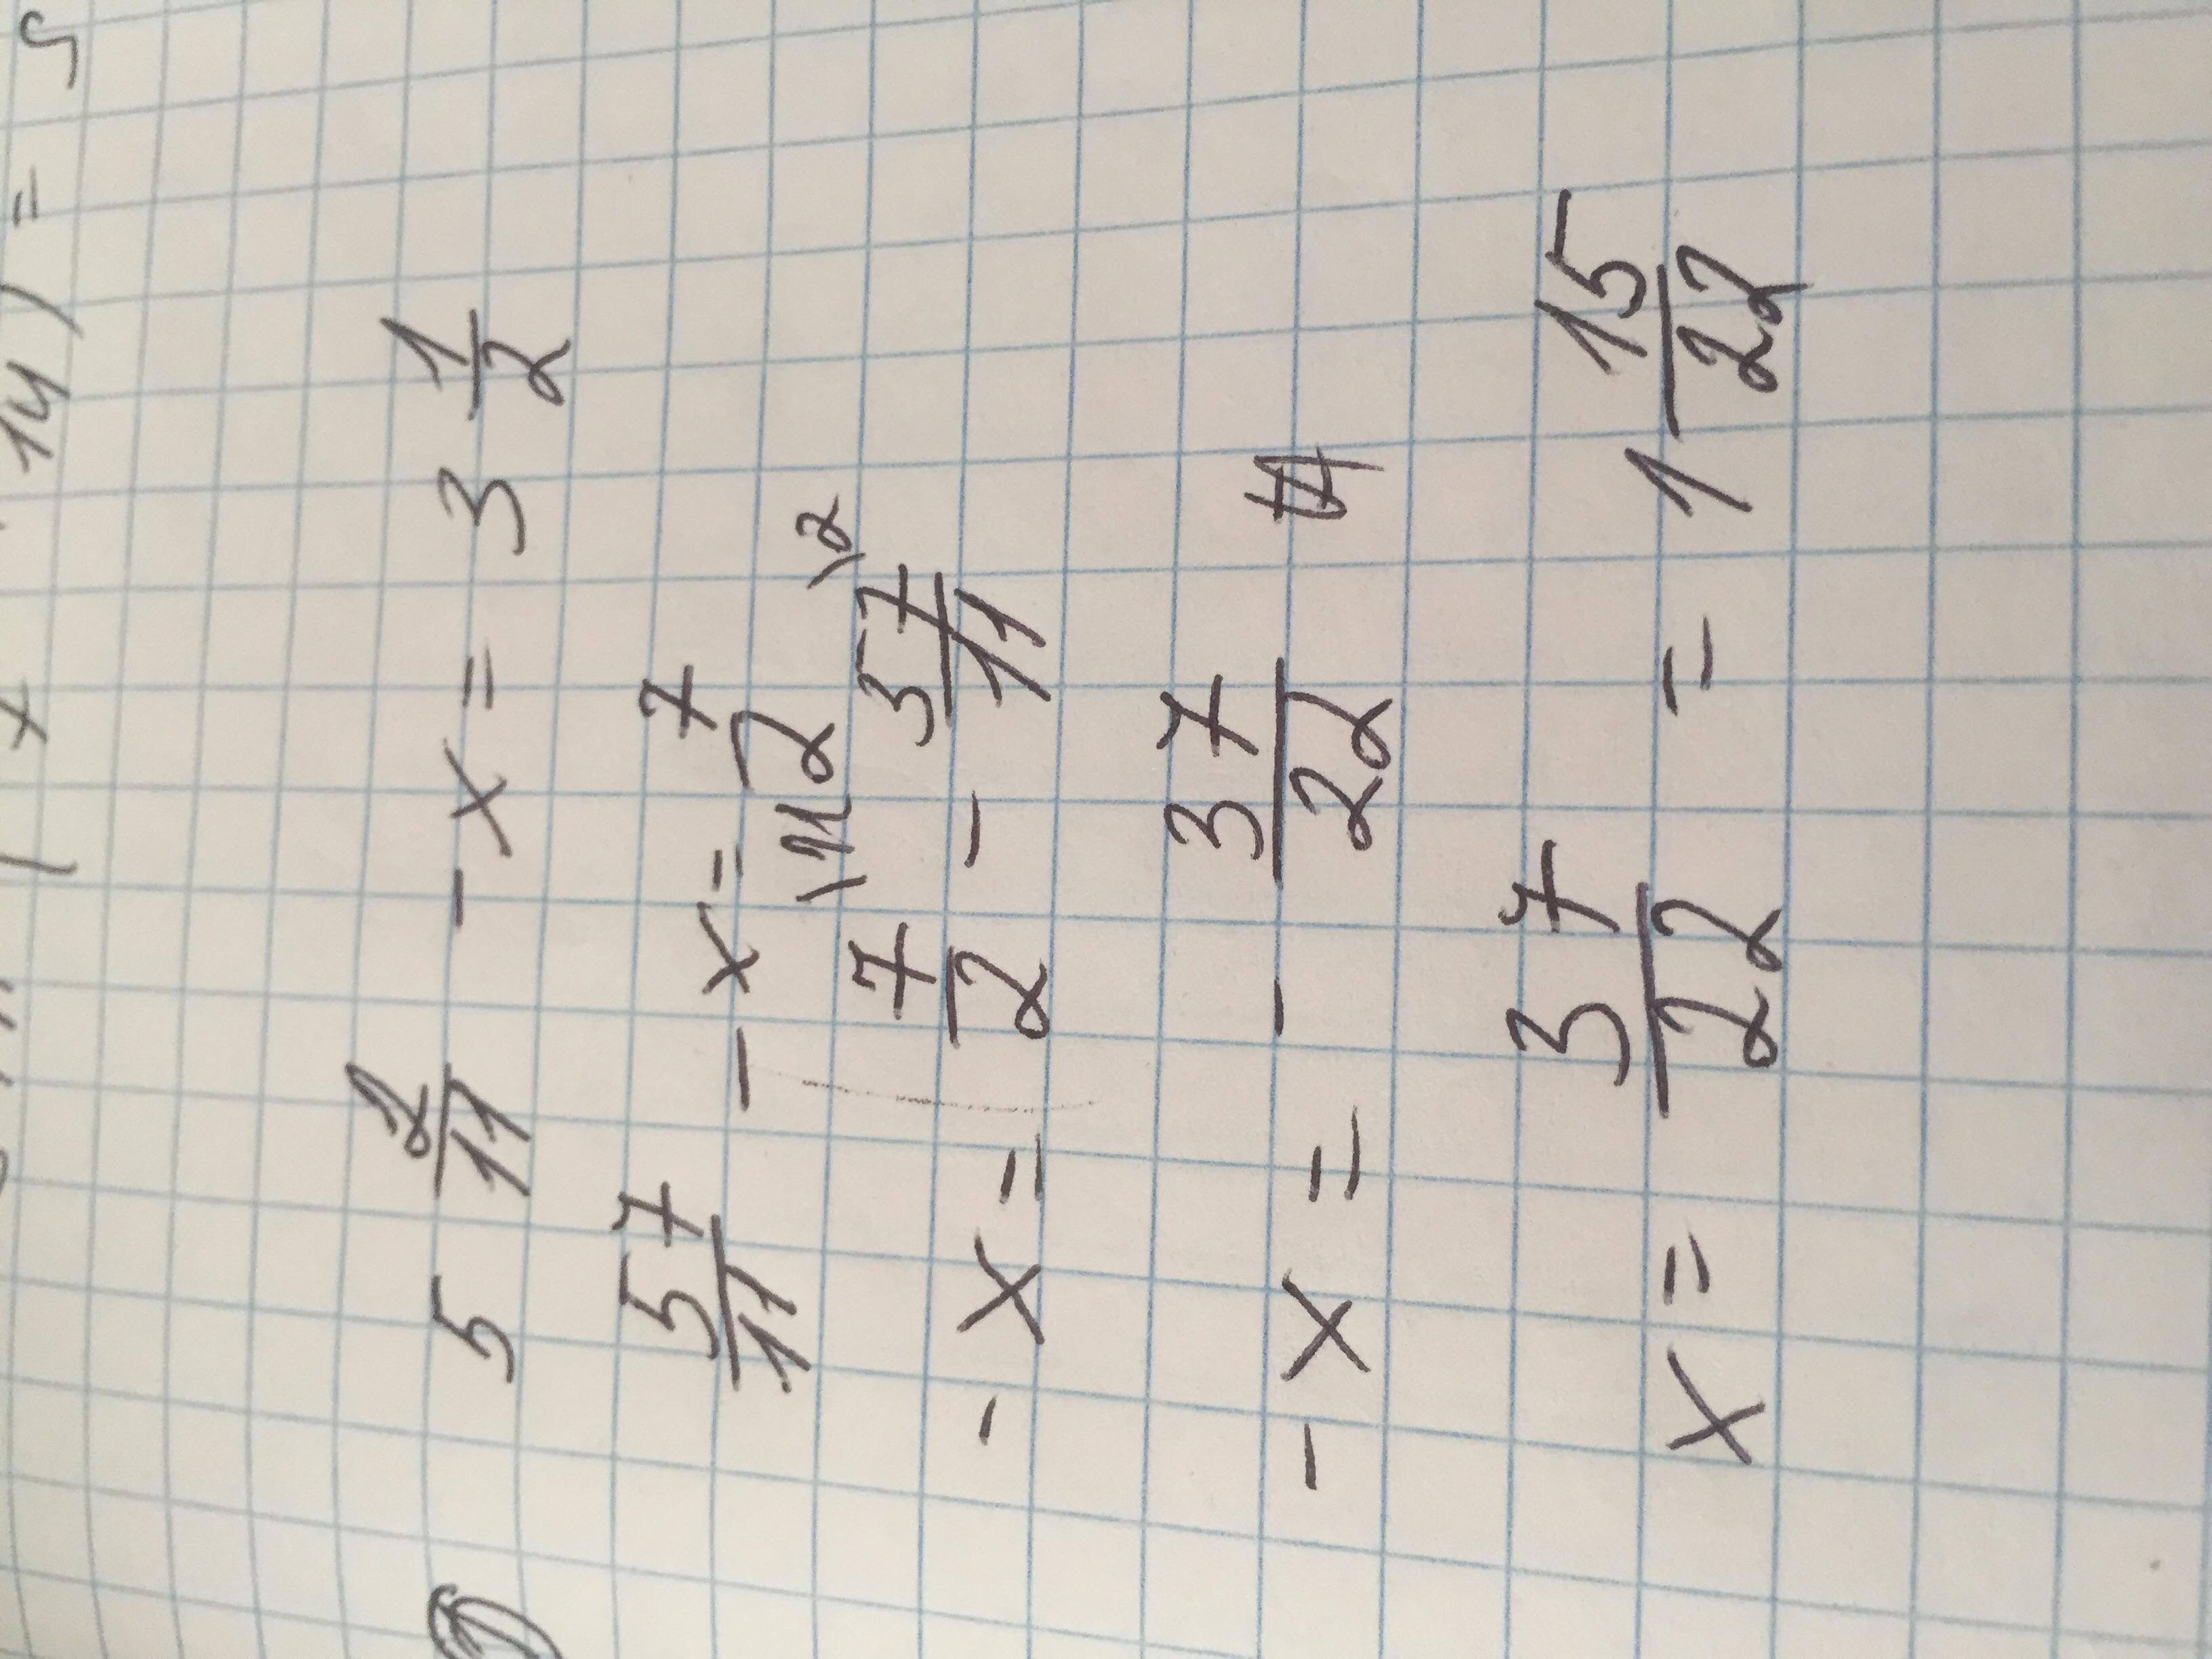 14) = 5
5 2/11 - x = 3 1/2
57/11 - x = 7/2
\11 \2
- x = 7/2 - 57/11
- x = - 37/22
x = 37/22 = 1 15/22